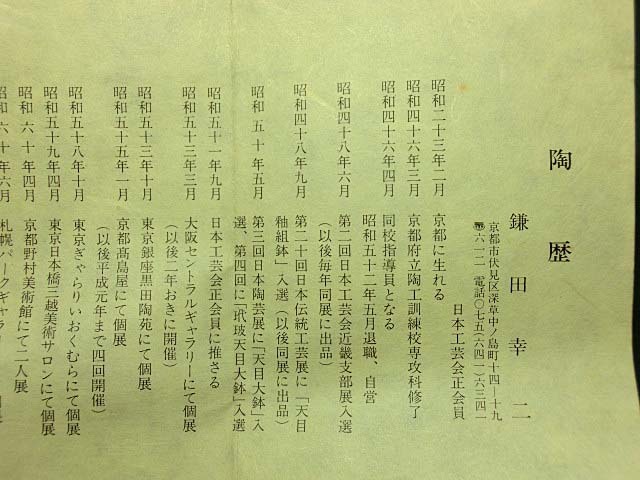 陶歴
鎌田幸二
京都市伏見区深草中ノ島町十四―十九
〒六一二 電話〇七五(六四一)六三四一
日本工芸会正会員
昭和二十三年二月 京都に生れる
昭和四十六年三月 京都府立陶工訓練校専攻科修了
昭和四十六年四月 同校指導員となる
昭和五十二年五月退職、自営
昭和四十八年六月 第二回日本工芸会近畿支部展入選
(以後毎年同展に出品)
昭和四十八年九月 第二十回日本伝統工芸展に「天目
釉組鉢」入選(以後同展に出品)
昭和五十年五月 第三回日本陶芸展に「天目大鉢」入
選、第四回に「玳玻天目大鉢」入選
昭和五十一年九月 日本工芸会正会員に推さる
昭和五十三年三月 大阪セントラルギャラリーにて個展
(以後二年おきに開催)
昭和五十三年十月 東京銀座黒田陶苑にて個展
昭和五十五年一月 京都髙島屋にて個展
(以後平成元年まで四回開催)
昭和五十八年十月 東京ぎゃらりぃおくむらにて個展
昭和五十九年四月 東京日本橋三越美術サロンにて個展
昭和六十年四月 京都野村美術館にて二人展
昭和六十年六月 札幌パークギャラリー